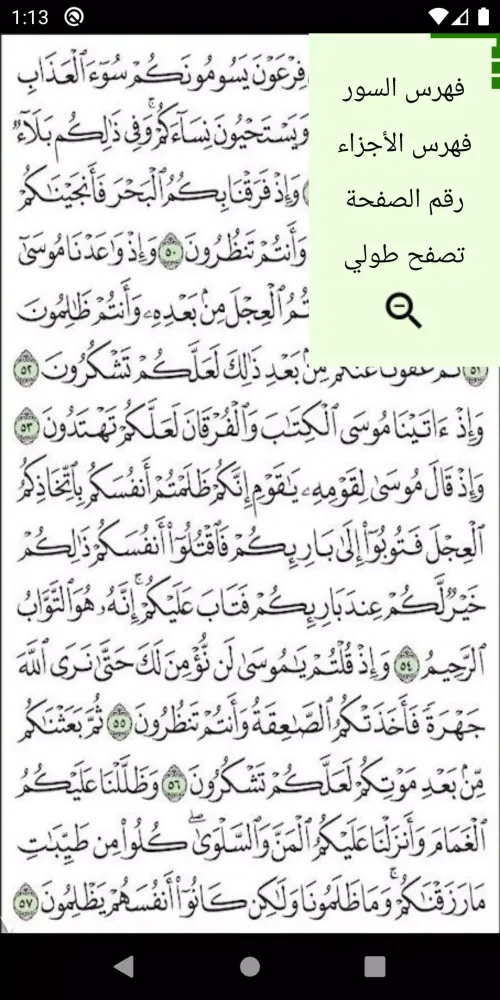 1:13
فهرس السور
فهرس الأجزاء
رقم الصفحة
تصفح طولي
فِرْعَوْنَ يَسُومُونَكُمْ سُوٓءَ ٱلْعَذَابِ
وَيَسْتَحْيُونَ نِسَآءَكُمْ ۚ وَفِى ذَٰلِكُم بَلَآءٌ
وَإِذْ فَرَقْنَا بِكُمُ ٱلْبَحْرَ فَأَنجَيْنَٰكُمْ
وَأَنتُمْ تَنظُرُونَ ٥٠ وَإِذْ وَٰعَدْنَا مُوسَىٰٓ
ٱلْعِجْلَ مِنۢ بَعْدِهِۦ وَأَنتُمْ ظَٰلِمُونَ
٥١ ثُمَّ عَفَوْنَا عَنكُم مِّنۢ بَعْدِ ذَٰلِكَ لَعَلَّكُمْ تَشْكُرُونَ ٥٢
وَإِذْ ءَاتَيْنَا مُوسَى ٱلْكِتَٰبَ وَٱلْفُرْقَانَ لَعَلَّكُمْ تَهْتَدُونَ ٥٣
وَإِذْ قَالَ مُوسَىٰ لِقَوْمِهِۦ يَٰقَوْمِ إِنَّكُمْ ظَلَمْتُمْ أَنفُسَكُم بِٱتِّخَاذِكُمُ
ٱلْعِجْلَ فَتُوبُوٓا۟ إِلَىٰ بَارِئِكُمْ فَٱقْتُلُوٓا۟ أَنفُسَكُمْ ذَٰلِكُمْ
خَيْرٌ لَّكُمْ عِندَ بَارِئِكُمْ فَتَابَ عَلَيْكُمْ ۚ إِنَّهُۥ هُوَ ٱلتَّوَّابُ
ٱلرَّحِيمُ ٥٤ وَإِذْ قُلْتُمْ يَٰمُوسَىٰ لَن نُّؤْمِنَ لَكَ حَتَّىٰ نَرَى ٱللَّهَ
جَهْرَةً فَأَخَذَتْكُمُ ٱلصَّٰعِقَةُ وَأَنتُمْ تَنظُرُونَ ٥٥ ثُمَّ بَعَثْنَٰكُم
مِّنۢ بَعْدِ مَوْتِكُمْ لَعَلَّكُمْ تَشْكُرُونَ ٥٦ وَظَلَّلْنَا عَلَيْكُمُ
ٱلْغَمَامَ وَأَنزَلْنَا عَلَيْكُمُ ٱلْمَنَّ وَٱلسَّلْوَىٰ ۖ كُلُوا۟ مِن طَيِّبَٰتِ
مَا رَزَقْنَٰكُمْ ۖ وَمَا ظَلَمُونَا وَلَٰكِن كَانُوٓا۟ أَنفُسَهُمْ يَظْلِمُونَ ٥٧